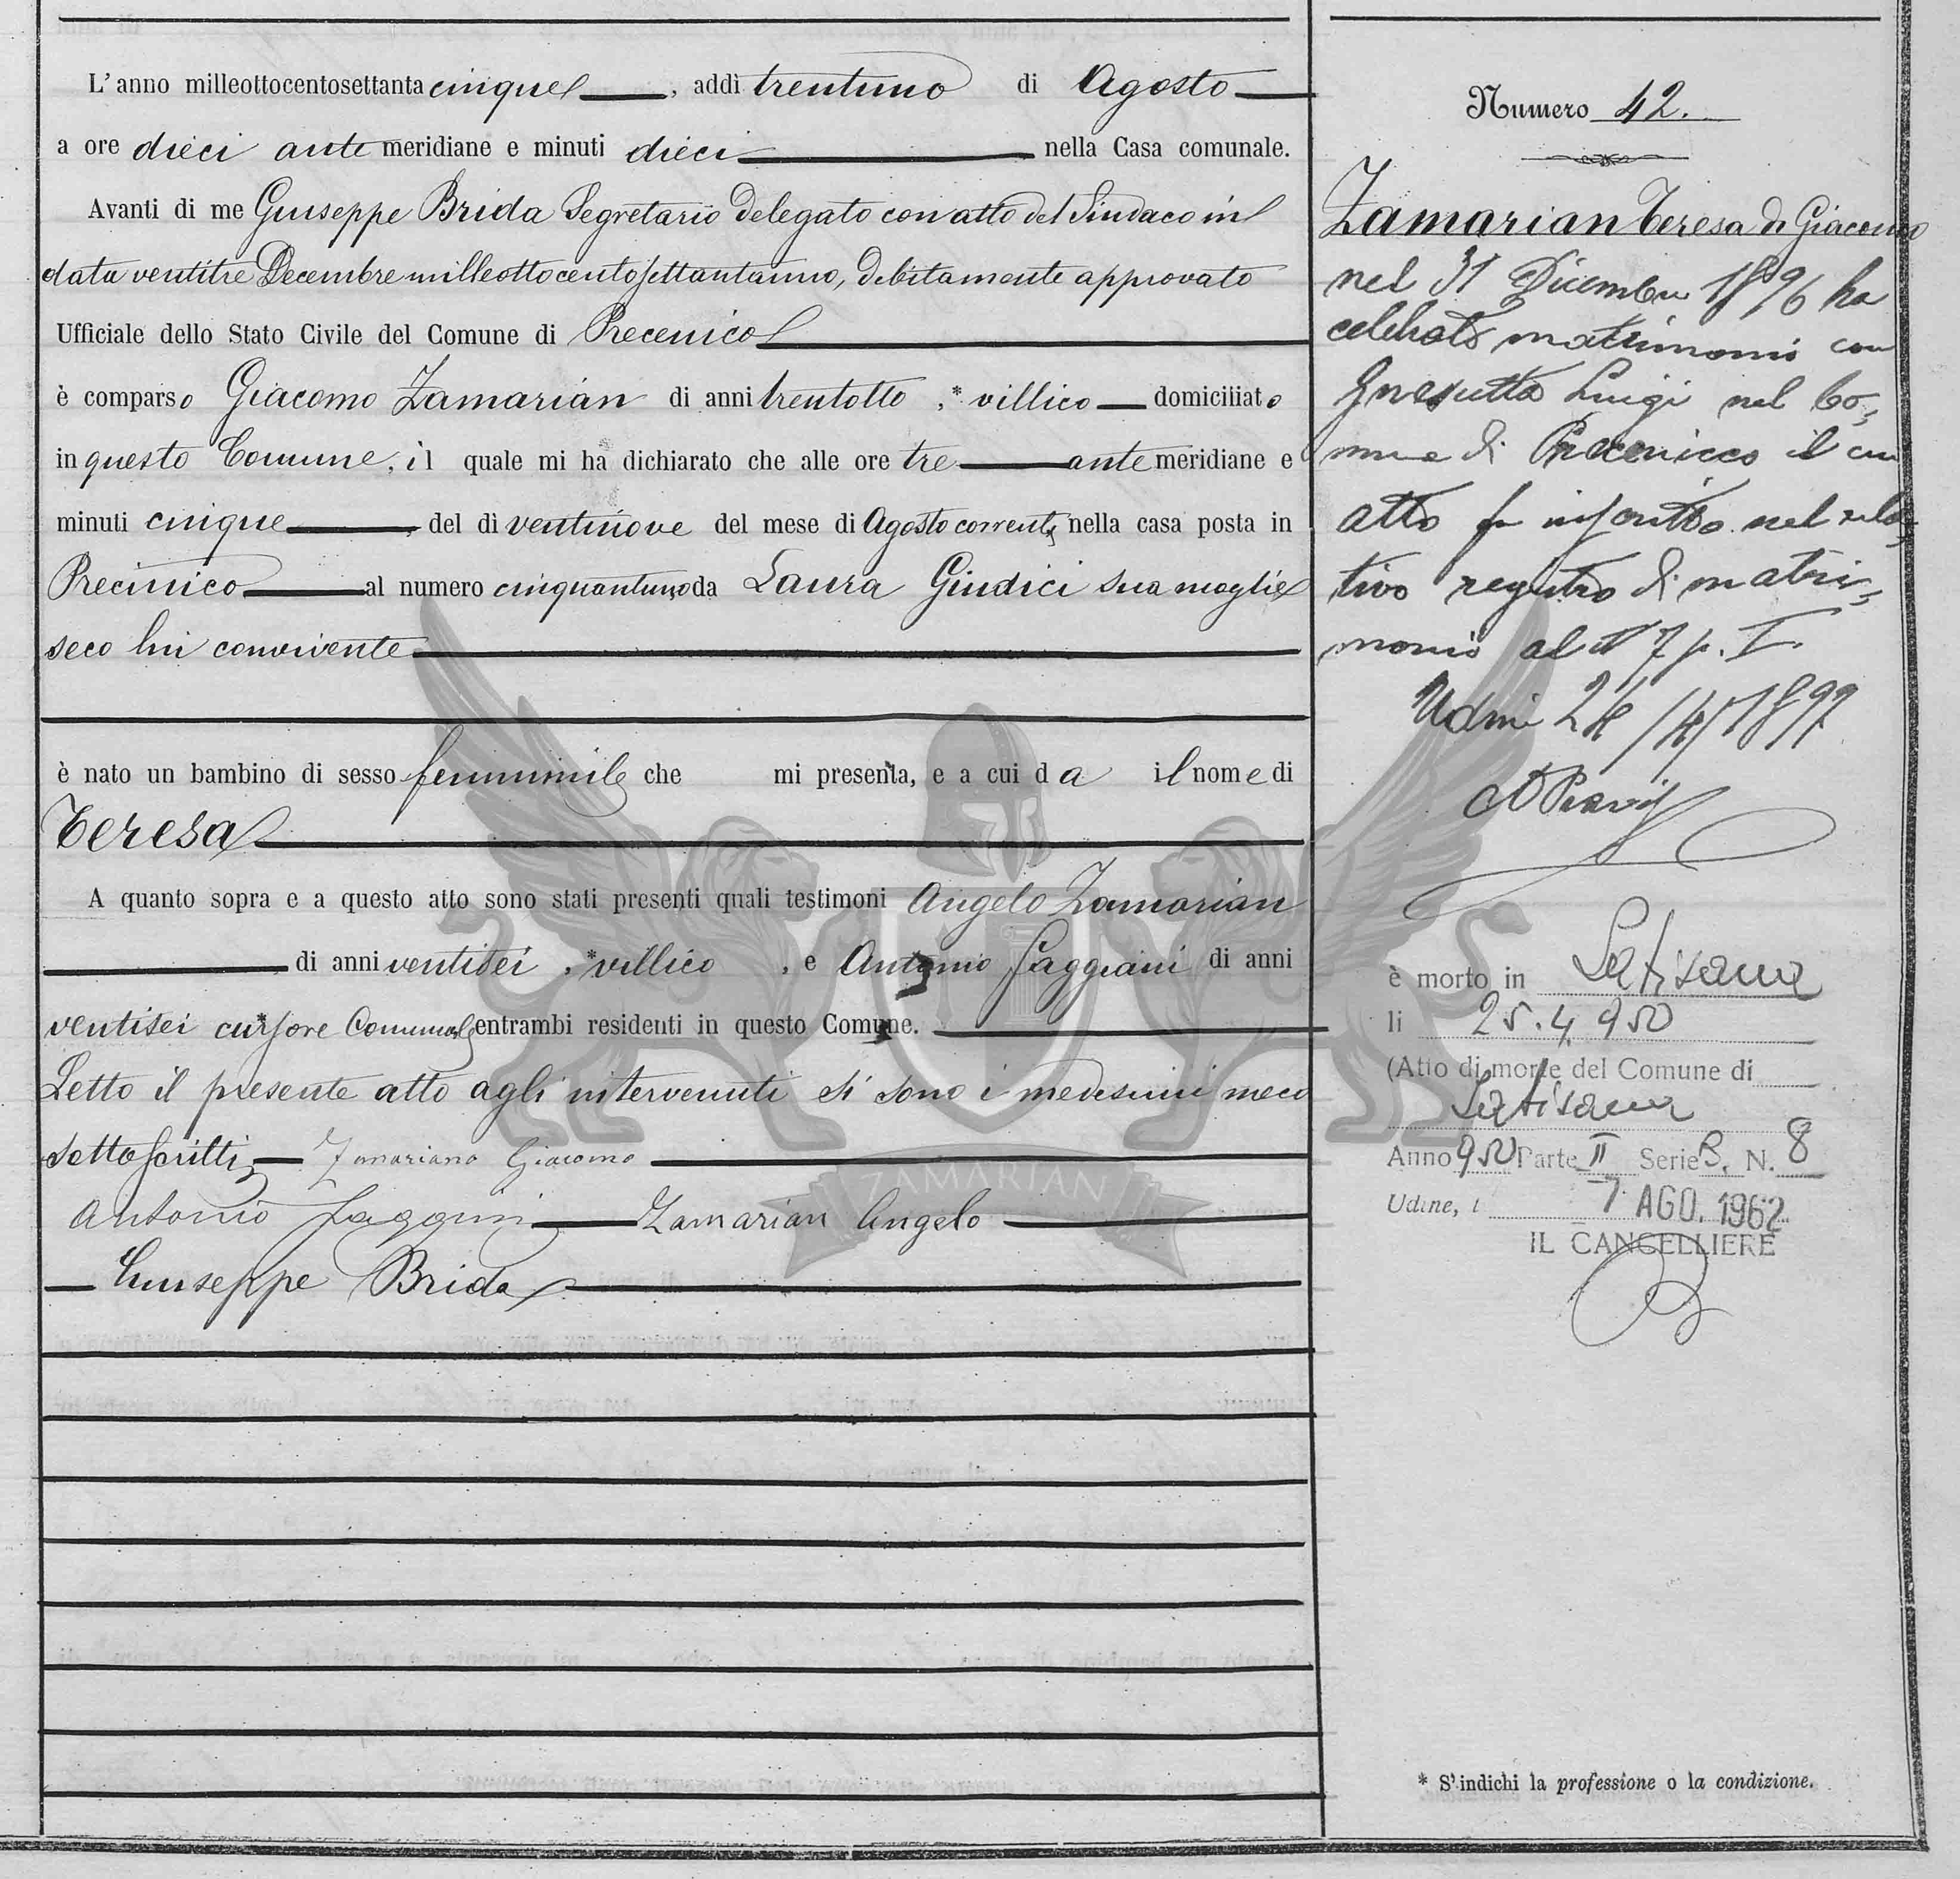 L'anno milleottocentosettanta cinque, addi trentuno di Agosto
a ore dieci ante meridiane e minuti dieci nella Casa comunale.
Avanti di me Giuseppe Brida Segretario delegato con atto del Sindaco in
data ventitre Decembre milleottocentosettantanno, debitamente approvato
Ufficiale dello Stato Civile del Comune di Precenico
è comparso Giacomo Zamarian di anni trentotto, * villico domiciliato
in questo Comune, il quale mi ha dichiarato che alle ore tre ante meridiane e
minuti cinque, del dì ventinove del mese di Agosto corrente, nella casa posta in
Precinico al numero cinquantuno da Laura Giudici sua moglie
seco lui convivente
è nato un bambino di sesso femminile che mi presenta, e a cui da il nome di
Teresa
A quanto sopra e a questo atto sono stati presenti quali testimoni Angelo Zamarian
di anni ventisei, * villico, e Antonio Faggiani di anni
ventisei cursore Comunale entrambi residenti in questo Comune.
Letto il presente atto agli intervenuti si sono i medesimi meco
sottoscritti, Zamariano Giacomo
Antonio Zamarian Angelo
Giuseppe Brida
ZAMARIAN
Numero 42.
Zamarian Teresa di Giacomo
nel 31 Dicembre 1896 ha
celebrato matrimonio con
Luigi nel Co=
mune di Precenicco il cui
atto fu inscritto nel rela=
tivo registro di matri=
monio al N 7 p. I.
Udine 1897
è morto in Latisana
li 25.4.950
(Atto di morte del Comune di
Latisana
Anno 950 Parte II Serie B. N. 8
Udine, li 7 AGO. 1962
IL CANCELLIERE
* S'indichi la professione o la condizione.